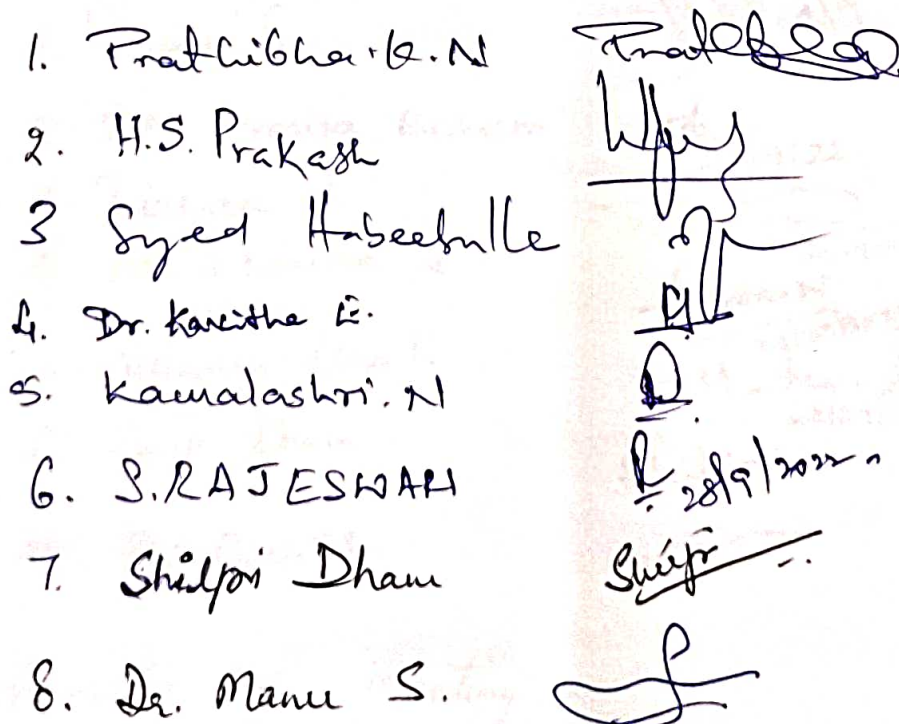 1. Prathibha.K.N Prathibha
2. H.S. Prakash
3 Syed Habeebulla
4. Dr. Kavitha E.
5. Kamalashri. N
6. S. RAJESWARI 28/9/2022
7. Shilpi Dham Shilpi
8. Dr. Manu S.